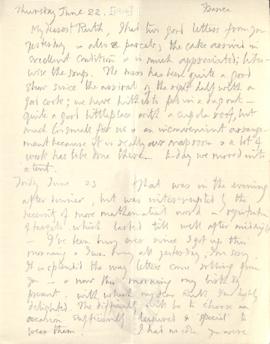 Thursday June 22. [1916] France
My dearest Ruth, I had two good letters from you
yesterday & also 2 parcels; the cake arrived in
excellent condition & is much appreciated; like-
wise the soups. The mess has been quite a good
show since the arrival of the
we have
quite a good little place with a cupola roof, but
much too small for us & an inconvenient arrange-
ment because it is really our map room & a lot of
work has to be done there. Today we moved into
a tent.
Friday June 23 That was in the evening
after dinner, but was interrupted by the
necessity of more mathematical work -
of targets which lasted till well after midnight
- I've been busy ever since I got up this
morning & I was busy all yesterday, I'm sorry.
It is splendid the way letters come
you - & now this morning my birthday
present with which my dear Ruth I'm highly
delighted. The difficulty will be to choose an
occasion sufficiently & special to
wear them. I had no idea you were